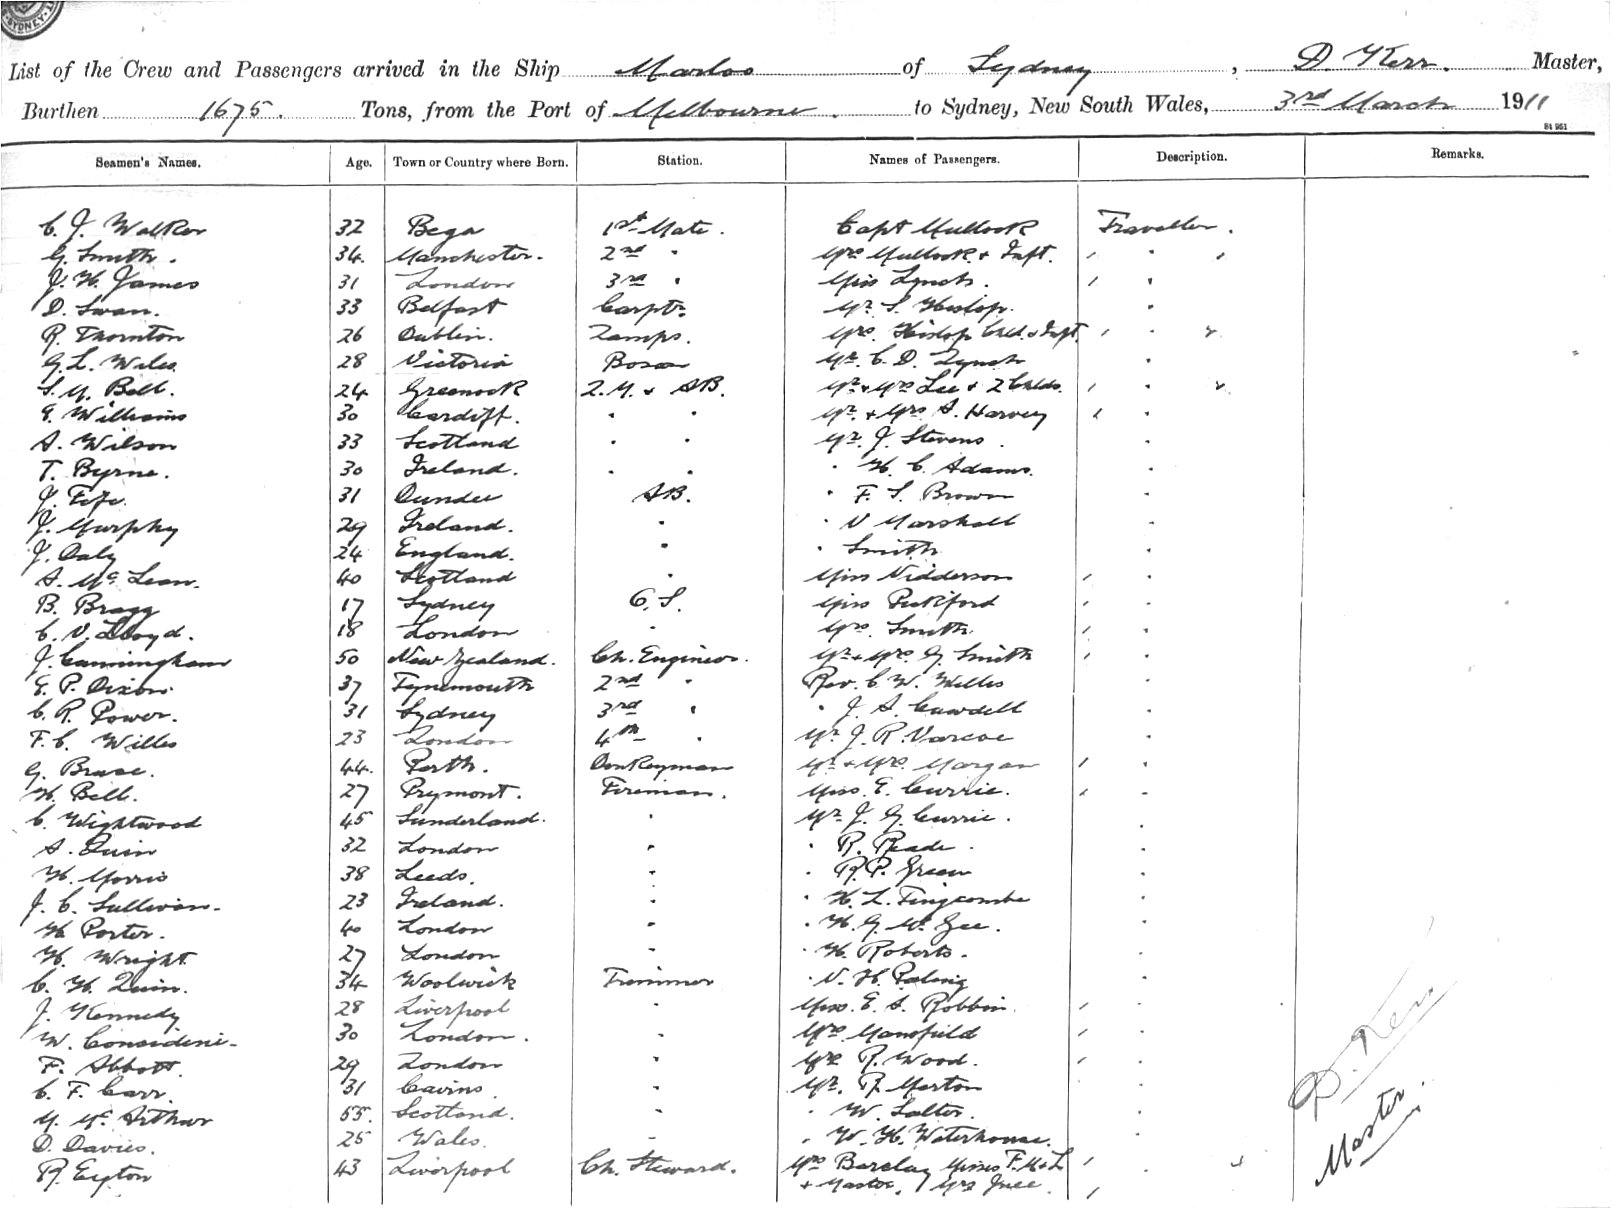 SYDNEY
List of the Crew and Passengers arrived in the Ship Marloo of Sydney, D. Kerr. Master,
Burthen 1675. Tons, from the Port of Melbourne. to Sydney, New South Wales, 3rd March 1911
St 951
Seamen's Names. Age. Town or Country where Born. Station. Names of Passengers. Description. Remarks.
C. J. Walker 32 Bega 1st Mate. Capt Mullock Traveller.
G. Smith. 34. Manchester. 2nd " Mrs Mullock & Inft. " " "
J. H. James 31 London 3rd " Miss Lynch. " "
D. Swan. 33 Belfast Carptr. Mr. S. Hislop. "
R. Thornton 26 Dublin. Lamps. Mrs. Hislop Chld. & Inft. " " "
G. L. Wiles. 28 Victoria Bosun Mr. C. D. Lynch "
S. M. Bell. 24 Greenock Q.M. & AB. Mr & Mrs Lee & 2 Chlds. " " "
E. Williams 30 Cardiff. " " Mr. & Mrs A. Harvey " "
A. Wilson 33 Scotland " " Mr. J. Stevens. "
T. Byrne. 30 Ireland. " " " H. C. Adams. "
J. Fife. 31 Dundee AB. " F. S. Brown "
J. Murphy 29 Ireland. " " V Marshall "
J. Daly 24 England. " " Smith "
A. McLean. 40 Scotland " Miss Nidderson " "
B. Bragg 17 Sydney O.S. Miss Peckford " "
C. V. Lloyd. 18 London " Mrs. Smith " "
J. Cunningham 50 New Zealand. Ch. Engineer. Mr & Mrs. G. Smith " "
E. P. Dixon. 37 Tynemouth 2nd " Rev. C. W. Willis "
C. R. Power. 31 Sydney 3rd " " J. A. Cawdell "
F. C. Willis 23 London 4th " Mr J. R. Varcoe "
G. Bruce. 44. Perth. Donkeyman Mr & Mrs. Morgan " "
H. Bell. 27 Pyrmont. Fireman. Miss. E. Currie. " "
C. Wightwood 45 Sunderland. " Mr J. G. Currie. "
A. Quin 32 London " " R. Reade. "
H. Morris 38 Leeds. " " R. P. Green "
J. C. Sullivan. 23 Ireland. " " H. L. Tingcombe "
H. Porter. 40 London " " H. G. McGee. "
H. Wright. 27 London " " H. Roberts. "
C. H. Quin. 34 Woolwich Trimmer " V. H. Paling "
J. Kennedy 28 Liverpool " Miss. E. A. Robbin. " "
W. Considine 30 London. " Mrs Mansfield " "
F. Abbott. 29 London " Mrs R. Wood. " "
C. F. Carr. 31 Cairns. " Mr. R. Morton "
M. McArthur 55. Scotland. " " W. Salter. "
D. Davies. 25 Wales. " " W. H. Waterhouse. "
R. Eyton 43 Liverpool Ch. Steward. Mrs Barclay Misses F. M & L " " "
& Master, Mrs "
D. Kerr
Master.